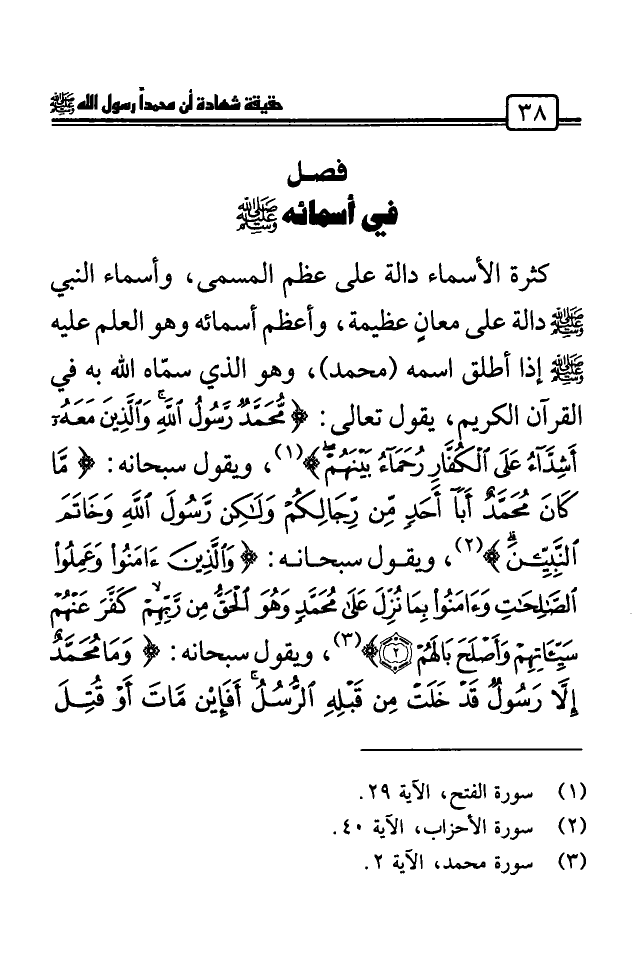 ٣٨
حقيقة شهادة أن محمداً رسول الله ﷺ
فصل
في أسمائه ﷺ
كثرة الأسماء دالة على عظم المسمى، وأسماء النبي
ﷺ دالة على معانٍ عظيمة، وأعظم أسمائه وهو العلم عليه
ﷺ إذا أطلق اسمه (محمد)، وهو الذي سمّاه الله به في
القرآن الكريم، يقول تعالى: ﴿ مُّحَمَّدٌ رَّسُولُ ٱللَّهِۚ وَٱلَّذِينَ مَعَهُۥٓ
أَشِدَّآءُ عَلَى ٱلْكُفَّارِ رُحَمَآءُ بَيْنَهُمْۖ ﴾(١)، ويقول سبحانه: ﴿ مَّا
كَانَ مُحَمَّدٌ أَبَآ أَحَدٍ مِّن رِّجَالِكُمْ وَلَٰكِن رَّسُولَ ٱللَّهِ وَخَاتَمَ
ٱلنَّبِيِّـۧنَۗ ﴾(٢)، ويقول سبحانه: ﴿ وَٱلَّذِينَ ءَامَنُوا۟ وَعَمِلُوا۟
ٱلصَّٰلِحَٰتِ وَءَامَنُوا۟ بِمَا نُزِّلَ عَلَىٰ مُحَمَّدٍ وَهُوَ ٱلْحَقُّ مِن رَّبِّهِمْۙ كَفَّرَ عَنْهُمْ
سَيِّـَٔاتِهِمْ وَأَصْلَحَ بَالَهُمْ ۝٢ ﴾(٣)، ويقول سبحانه: ﴿ وَمَا مُحَمَّدٌ
إِلَّا رَسُولٌ قَدْ خَلَتْ مِن قَبْلِهِ ٱلرُّسُلُۚ أَفَإِي۟ن مَّاتَ أَوْ قُتِلَ
(١) سورة الفتح، الآية ٢٩.
(٢) سورة الأحزاب، الآية ٤٠.
(٣) سورة محمد، الآية ٢.